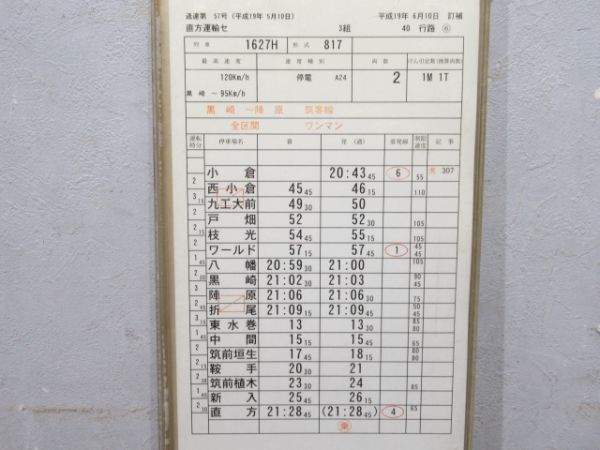 通達第 57号(平成19年 5月10日) 平成19年 6月10日 訂補
直方運輸セ 3組 40 行路 ⑥
列車 1627H 形式 817
最高速度 速度種別 両数 けん引定数(換算両数)
120Km/h 停電 A24 2 1M 1T
黒崎 ~ 95Km/h
黒崎 ~陣原 貨客線
全区間 ワンマン
運転時分 停車場名 着 発(通) 着発線 制限速度 記事
小倉 20:43 45 6 55 307
2
西小倉 45 45 46 15 110
3 15
九工大前 49 30 50
2
戸畑 52 52 30 105
2 15
枝光 54 45 55 15 105
2
ワールド 57 15 57 45 1 45 45
1 45
八幡 20:59 30 21:00 105
2 30
黒崎 21:02 30 21:03 90 45
3
陣原 21:06 21:06 30 75
2 45
折尾 21:09 15 21:09 45 50 45
3 15
東水巻 13 13 30 85 85
1 45
中間 15 15 15 45 65
2
筑前垣生 17 45 18 15 80 80
2 15
鞍手 20 30 21
2 30
筑前植木 23 30 24 85
1 45
新入 25 45 26 15
2 30
直方 21:28 45 (21:28 45) 4 65
乗